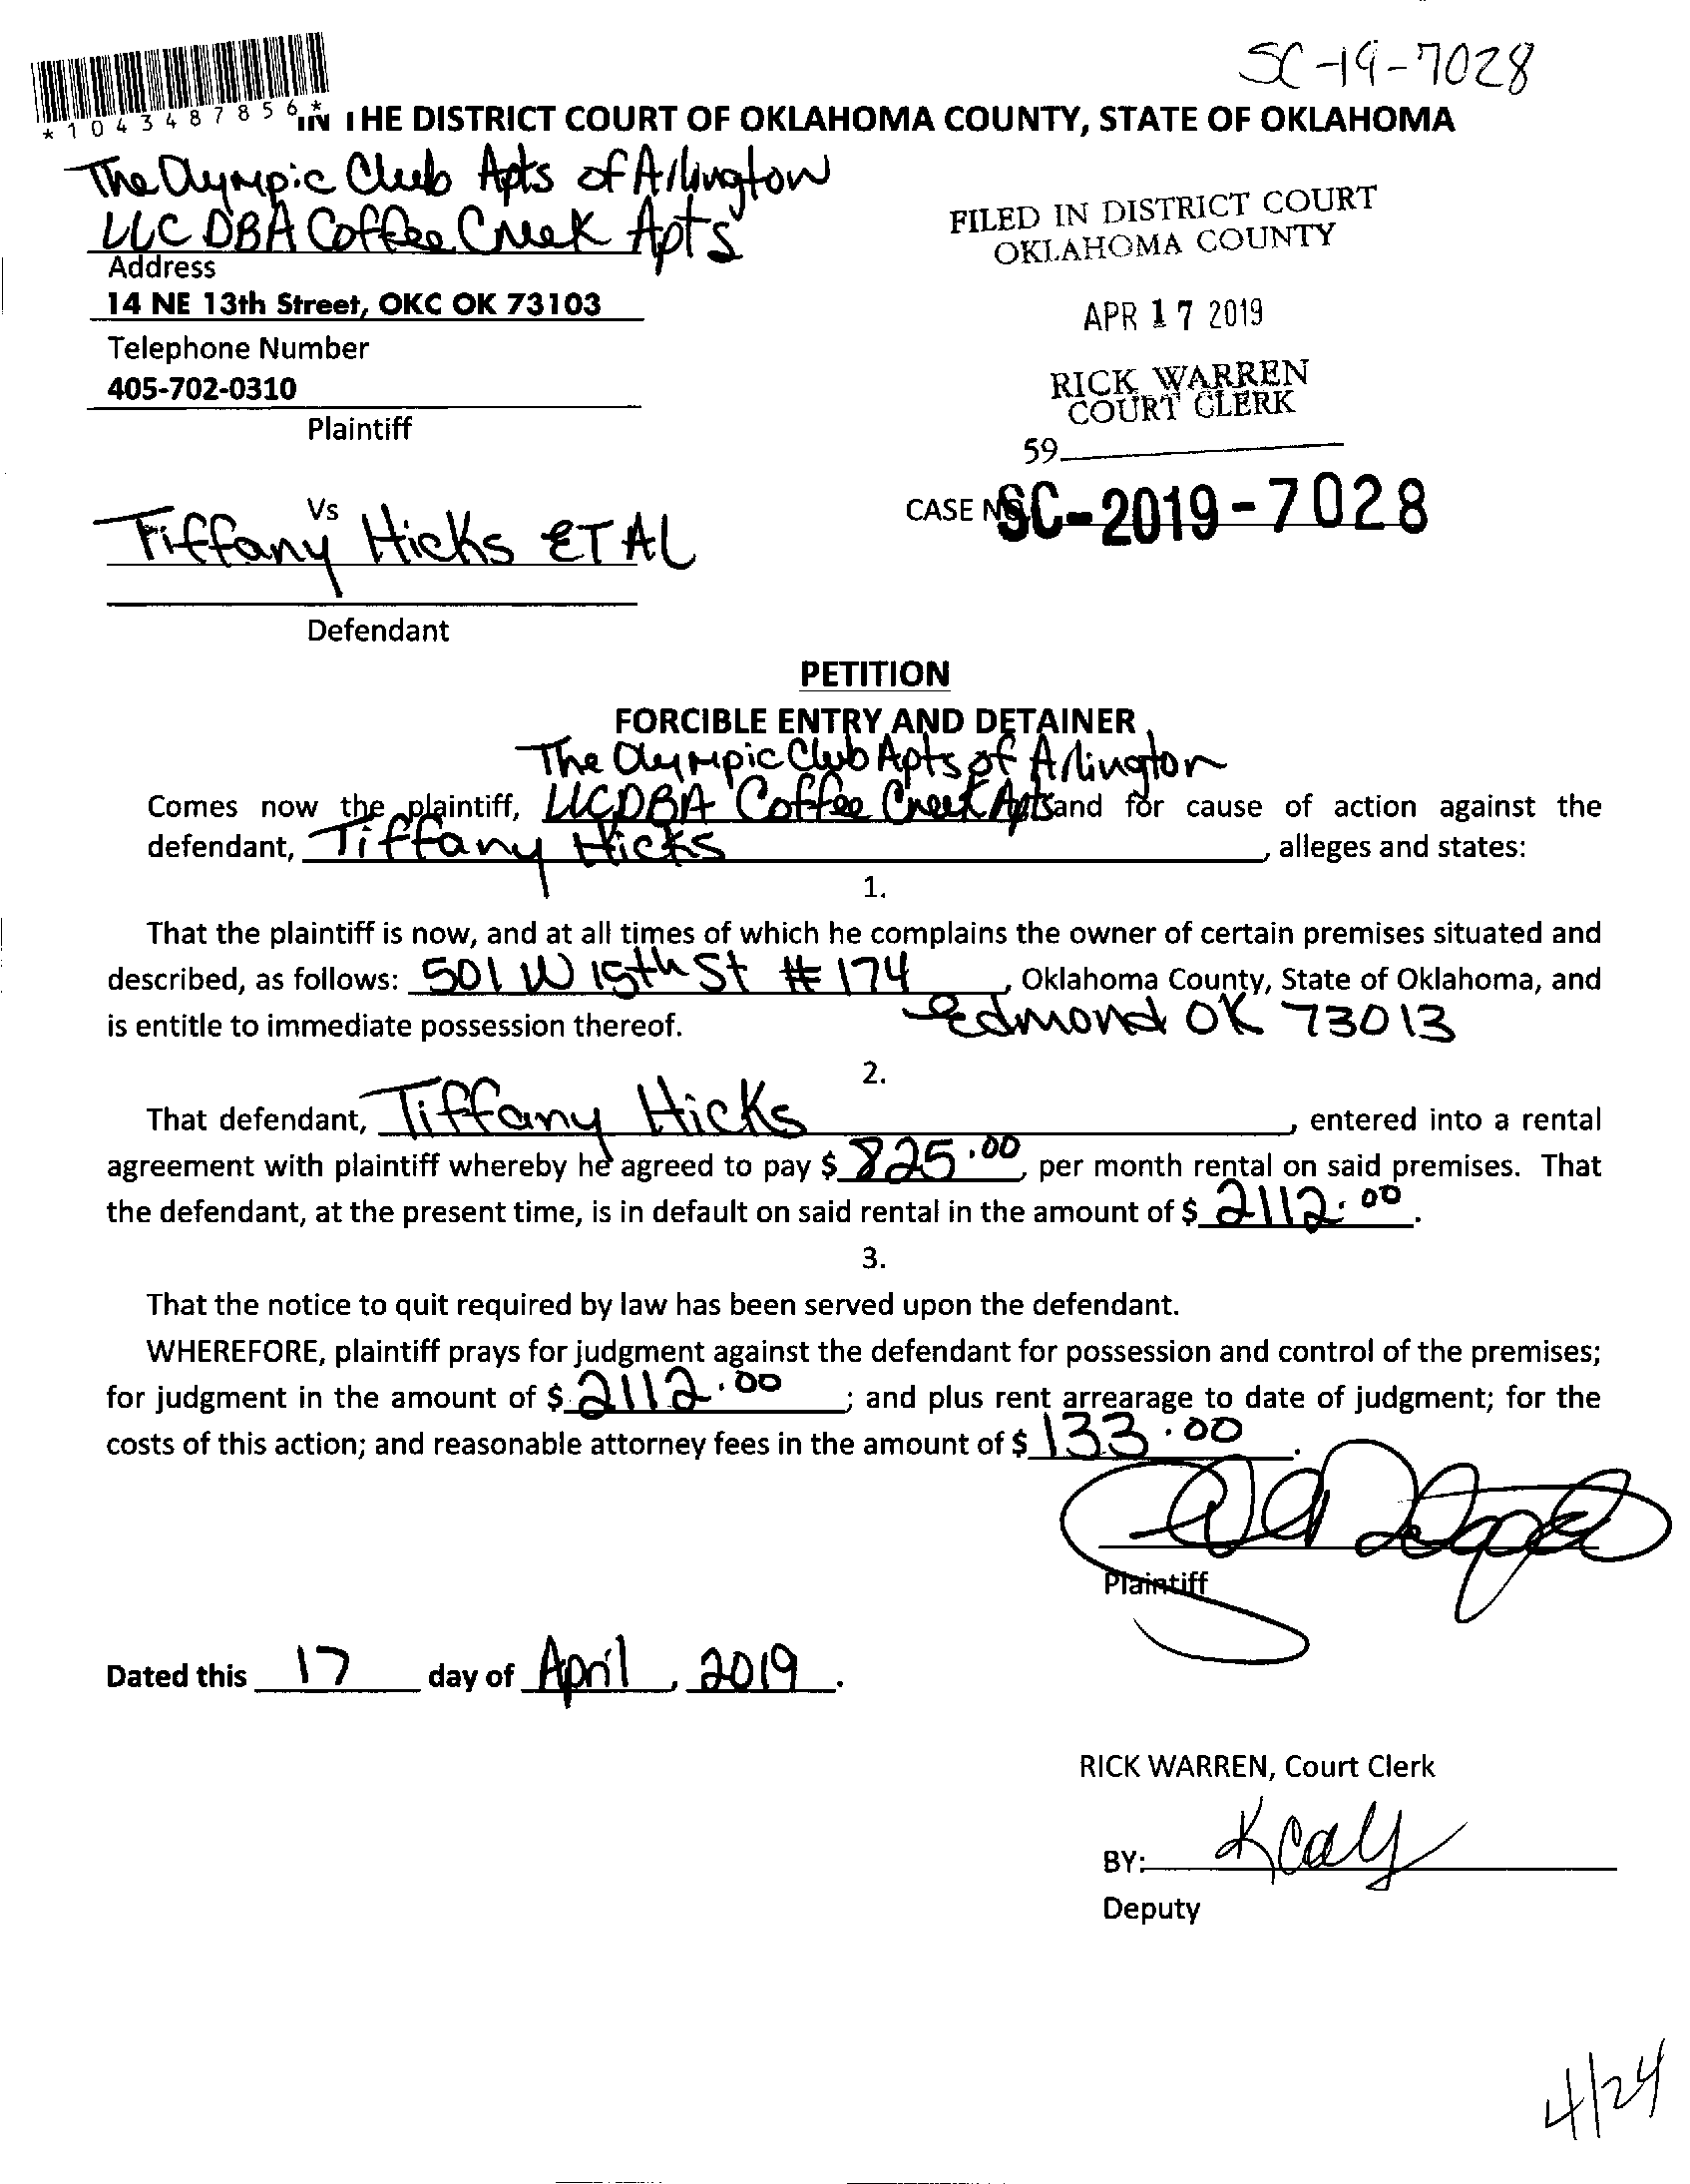 SC-19-7028
*1043487856*
IN THE DISTRICT COURT OF OKLAHOMA COUNTY, STATE OF OKLAHOMA
The Olympic Club Apts of Arlington
LLC DBA Coffee Creek Apts
Address
14 NE 13th Street, OKC OK 73103
Telephone Number
405-702-0310
Plaintiff
FILED IN DISTRICT COURT
OKLAHOMA COUNTY
APR 17 2019
RICK WARREN
COURT CLERK
59
Vs
Tiffany Hicks ET AL
Defendant
CASE NO. SC-2019-7028
PETITION
FORCIBLE ENTRY AND DETAINER
The Olympic Club Apts of Arlington
Comes now the plaintiff, LLC DBA Coffee Creek Apts and for cause of action against the
defendant, Tiffany Hicks, alleges and states:
1.
That the plaintiff is now, and at all times of which he complains the owner of certain premises situated and
described, as follows: 501 W 15th St # 174, Oklahoma County, State of Oklahoma, and
is entitle to immediate possession thereof. Edmond OK 73013
2.
That defendant, Tiffany Hicks, entered into a rental
agreement with plaintiff whereby he agreed to pay $ 825.00, per month rental on said premises. That
the defendant, at the present time, is in default on said rental in the amount of $ 2112.00.
3.
That the notice to quit required by law has been served upon the defendant.
WHEREFORE, plaintiff prays for judgment against the defendant for possession and control of the premises;
for judgment in the amount of $ 2112.00; and plus rent arrearage to date of judgment; for the
costs of this action; and reasonable attorney fees in the amount of $ 133.00.
Plaintiff
Dated this 17 day of April, 2019.
RICK WARREN, Court Clerk
BY:
Deputy
4/24